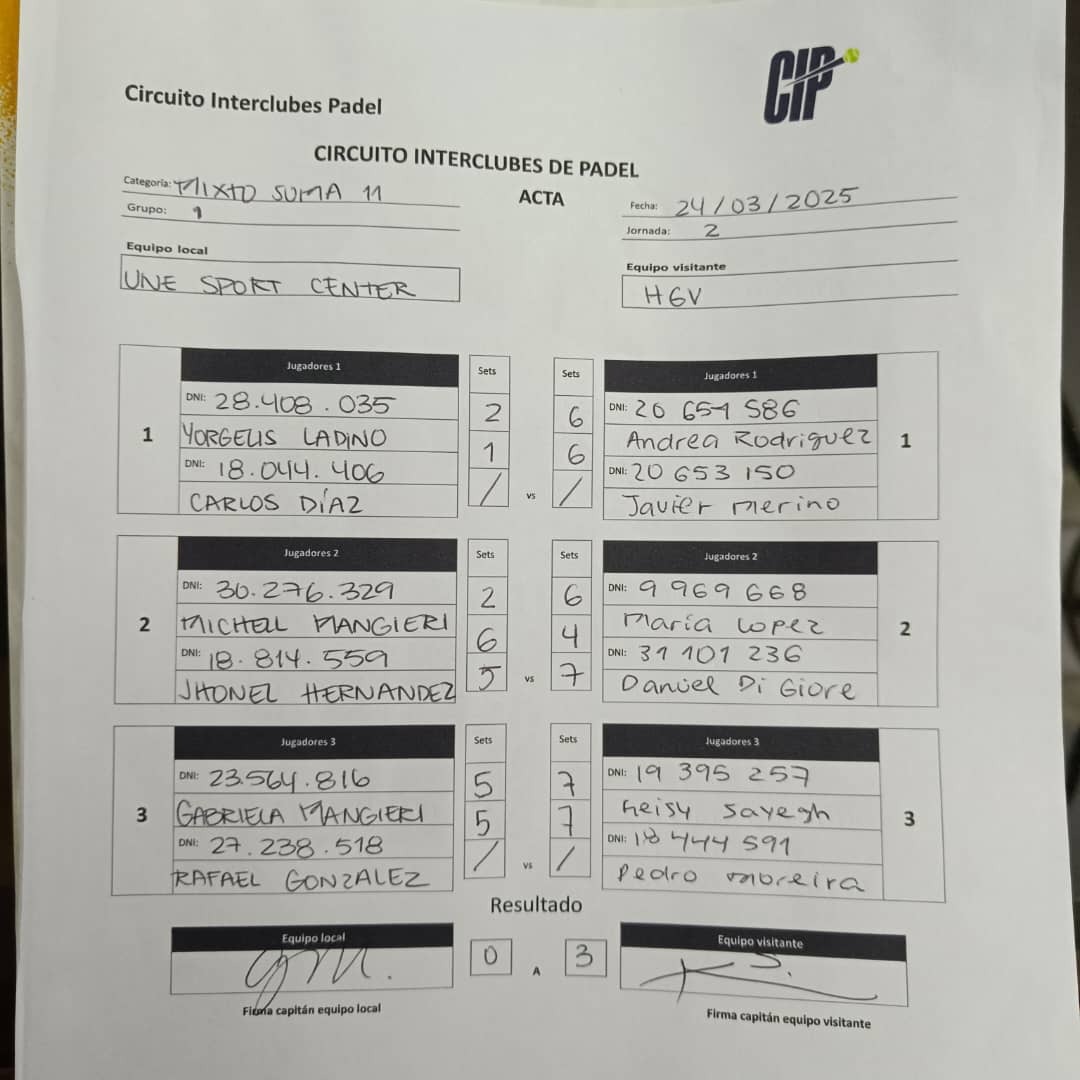 Circuito Interclubes Padel
CIP
CIRCUITO INTERCLUBES DE PADEL
ACTA
Categoría: MIXTO SUMA 11
Grupo: 1
Fecha: 24/03/2025
Jornada: 2
Equipo local
UNE SPORT CENTER
Equipo visitante
HGV
1
Jugadores 1
DNI: 28.408.035
YORGELIS LADINO
DNI: 18.044.406
CARLOS DÍAZ
Sets
2
1
/
vs
Sets
6
6
/
Jugadores 1
DNI: 20 654 586
Andrea Rodriguez
DNI: 20 653 150
Javier merino
1
2
Jugadores 2
DNI: 30.276.329
MICHELL MANGIERI
DNI: 18.814.559
JHONEL HERNANDEZ
Sets
2
6
5
vs
Sets
6
4
7
Jugadores 2
DNI: 9 969 668
María Lopez
DNI: 31 101 236
Daniel Di Giore
2
3
Jugadores 3
DNI: 23.564.816
GABRIELA MANGIERI
DNI: 27.238.518
RAFAEL GONZALEZ
Sets
5
5
/
vs
Sets
7
7
/
Jugadores 3
DNI: 19 395 257
heisy sayegh
DNI: 18 444 591
Pedro moreira
3
Resultado
Equipo local
0
A
3
Equipo visitante
Firma capitán equipo local
Firma capitán equipo visitante